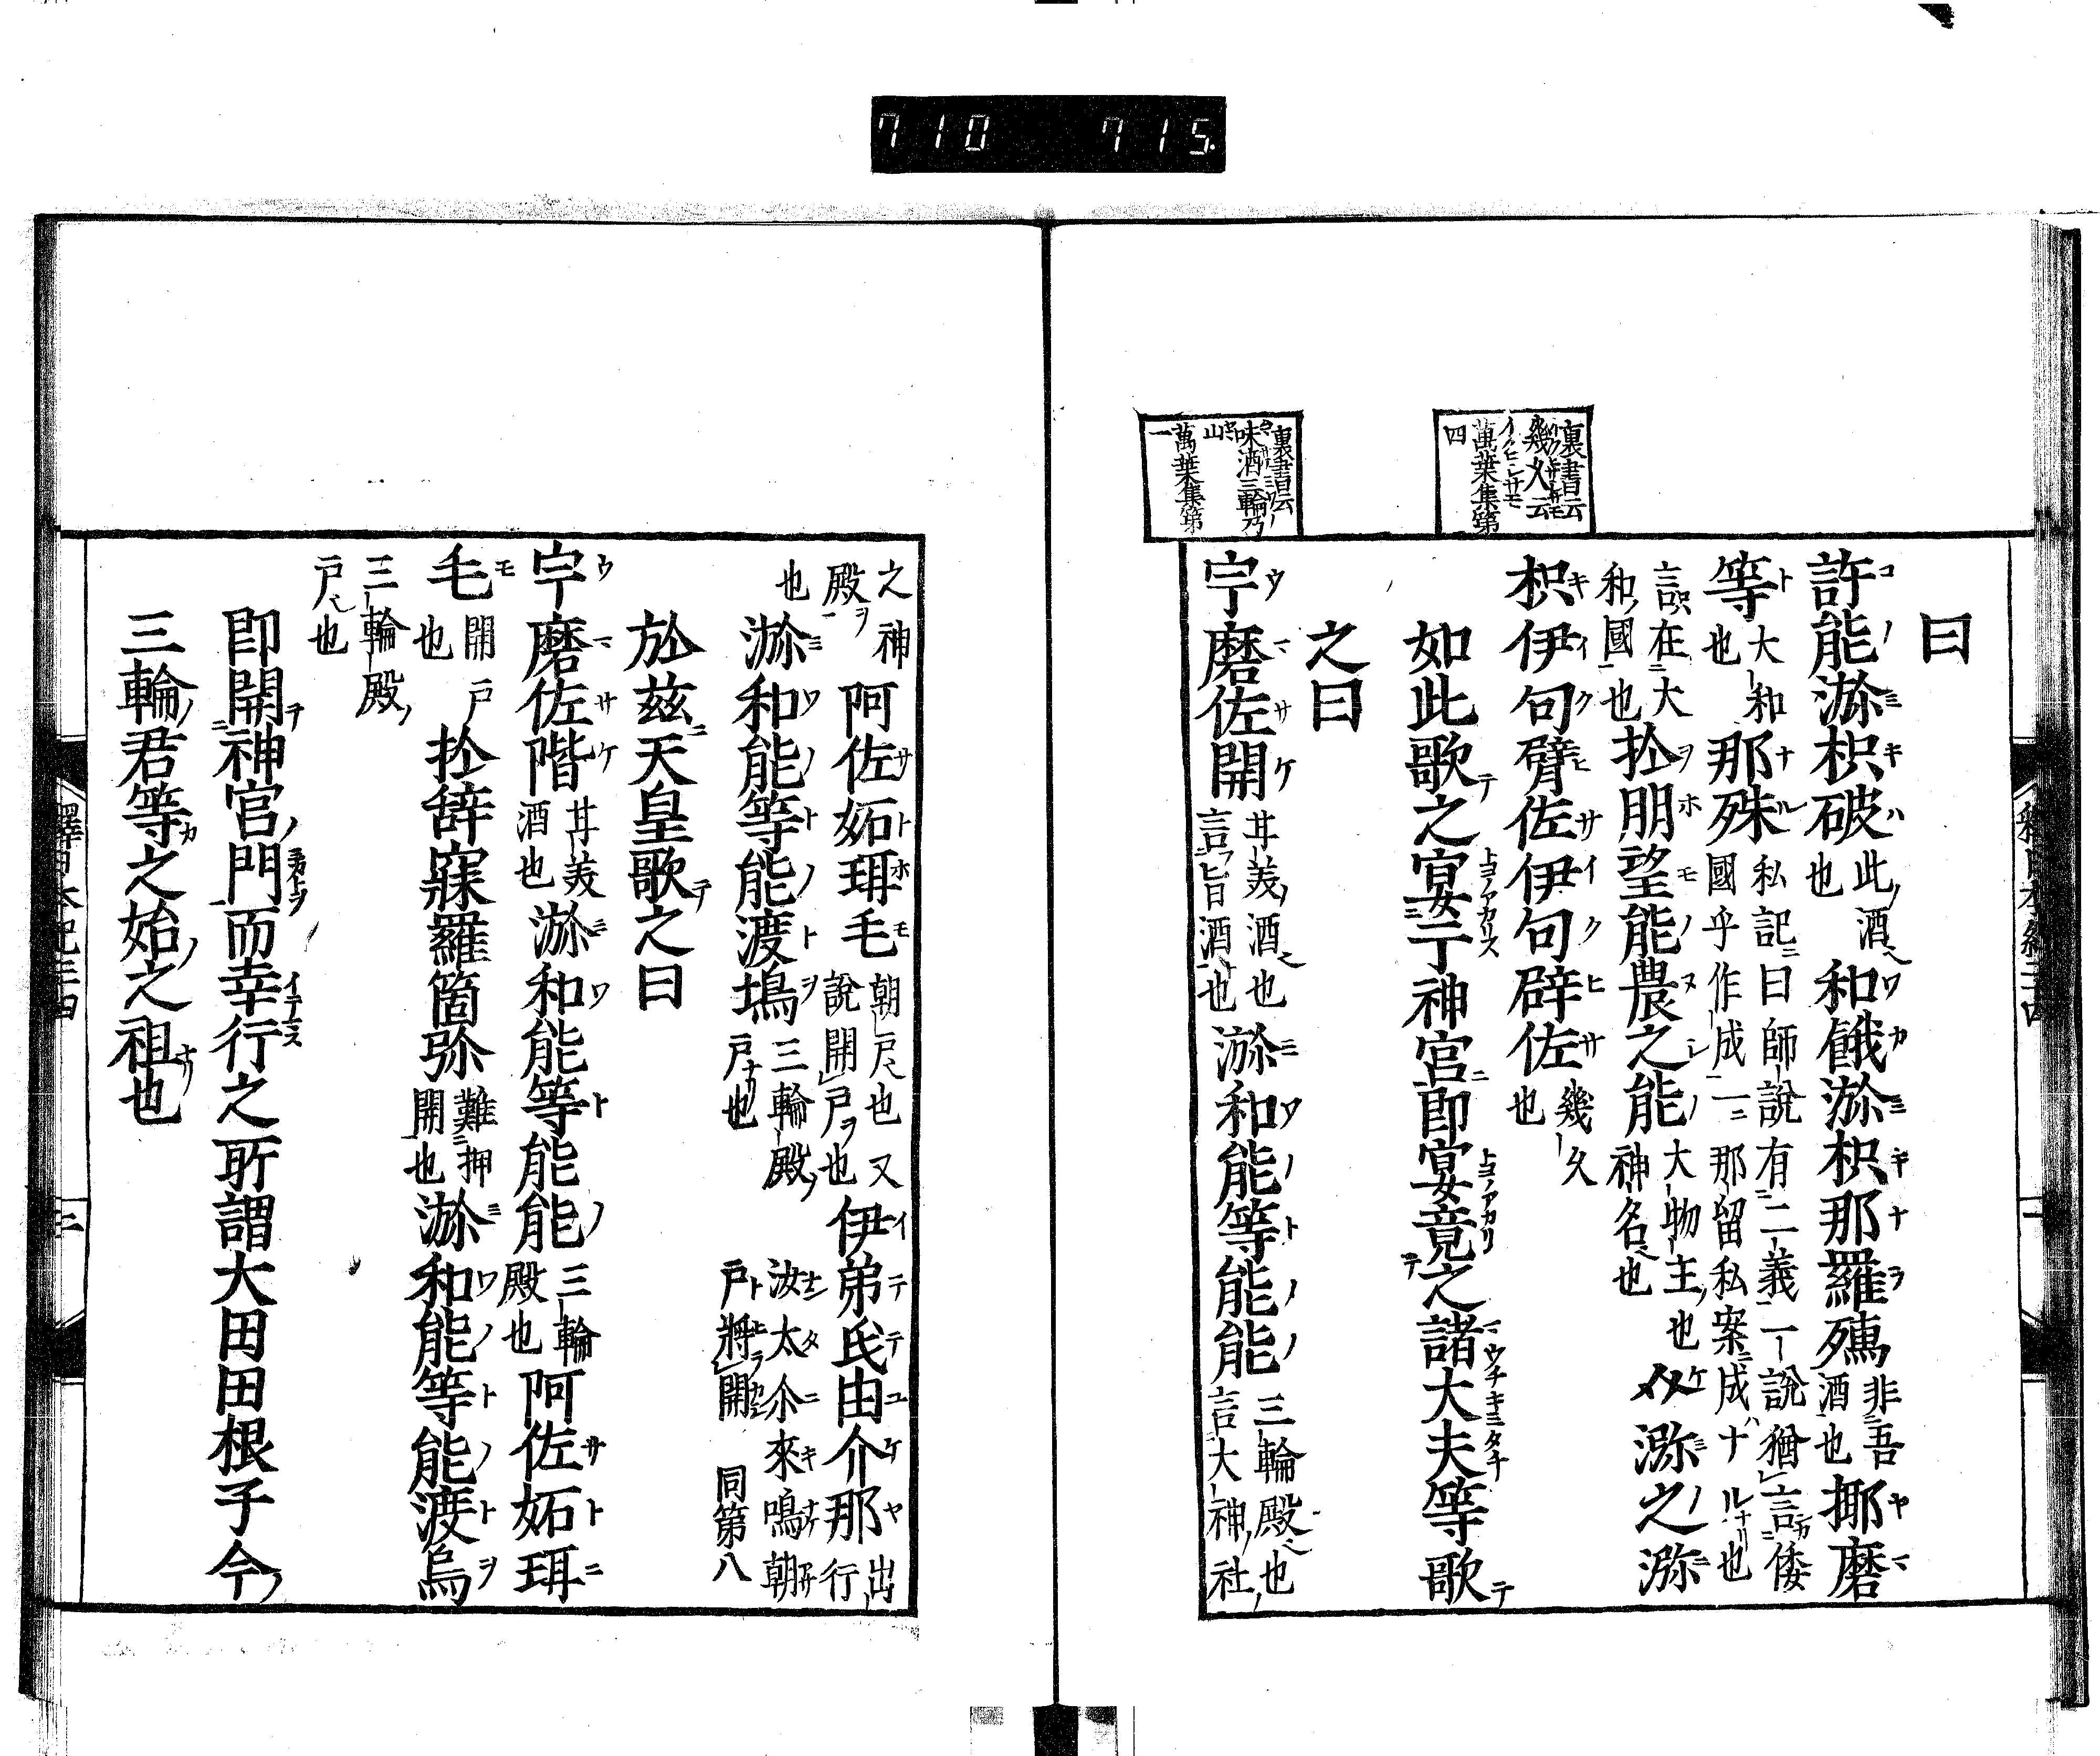 710 715
裏書云
幾久云
イクヒサモ
萬葉集第
四
裏書云
味酒三輪乃
山
萬葉集第
一
曰
許能瀰枳破 此ノ酒ハ也 和餓瀰枳那羅孺 非吾酒也 揶磨
等 大和也 那殊 私記曰師說有二義一說猶言倭國乎作成一ニ那留私案成ハナルナリ也
言在大和國也 於朋望能農之能 大物主也神名也 介瀰之瀰
枳伊句臂佐伊句辟佐 幾久也
如此歌之宴于神宮即宴竟之諸大夫等歌
之曰
宇磨佐開 味酒也言旨酒也 瀰和能等能能 三輪殿也言大神社
之神殿也 阿佐妬珥毛 朝戶也又說開戶也 伊弟氐由介那 出行
瀰和能等能渡塢 三輪殿戶也 汝太介來鳴朝戶將開 同第八
於茲天皇歌之曰
宇磨佐階 味酒也 瀰和能等能能 三輪殿也 阿佐妬珥
毛 開戶也 於辭寐羅箇弥 難押開也 瀰和能等能渡烏
三輪殿戶也
即開神宮門而幸行之所謂大田田根子今
三輪君等之始之祖也
釋日本紀二十四
三